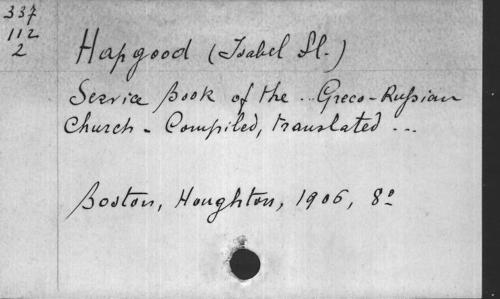 337
112
2
Hapgood (Isabel Fl.)
Service Book of the ... Greco-Russian
Church - Compiled, translated ...
Boston, Houghton, 1906, 8º